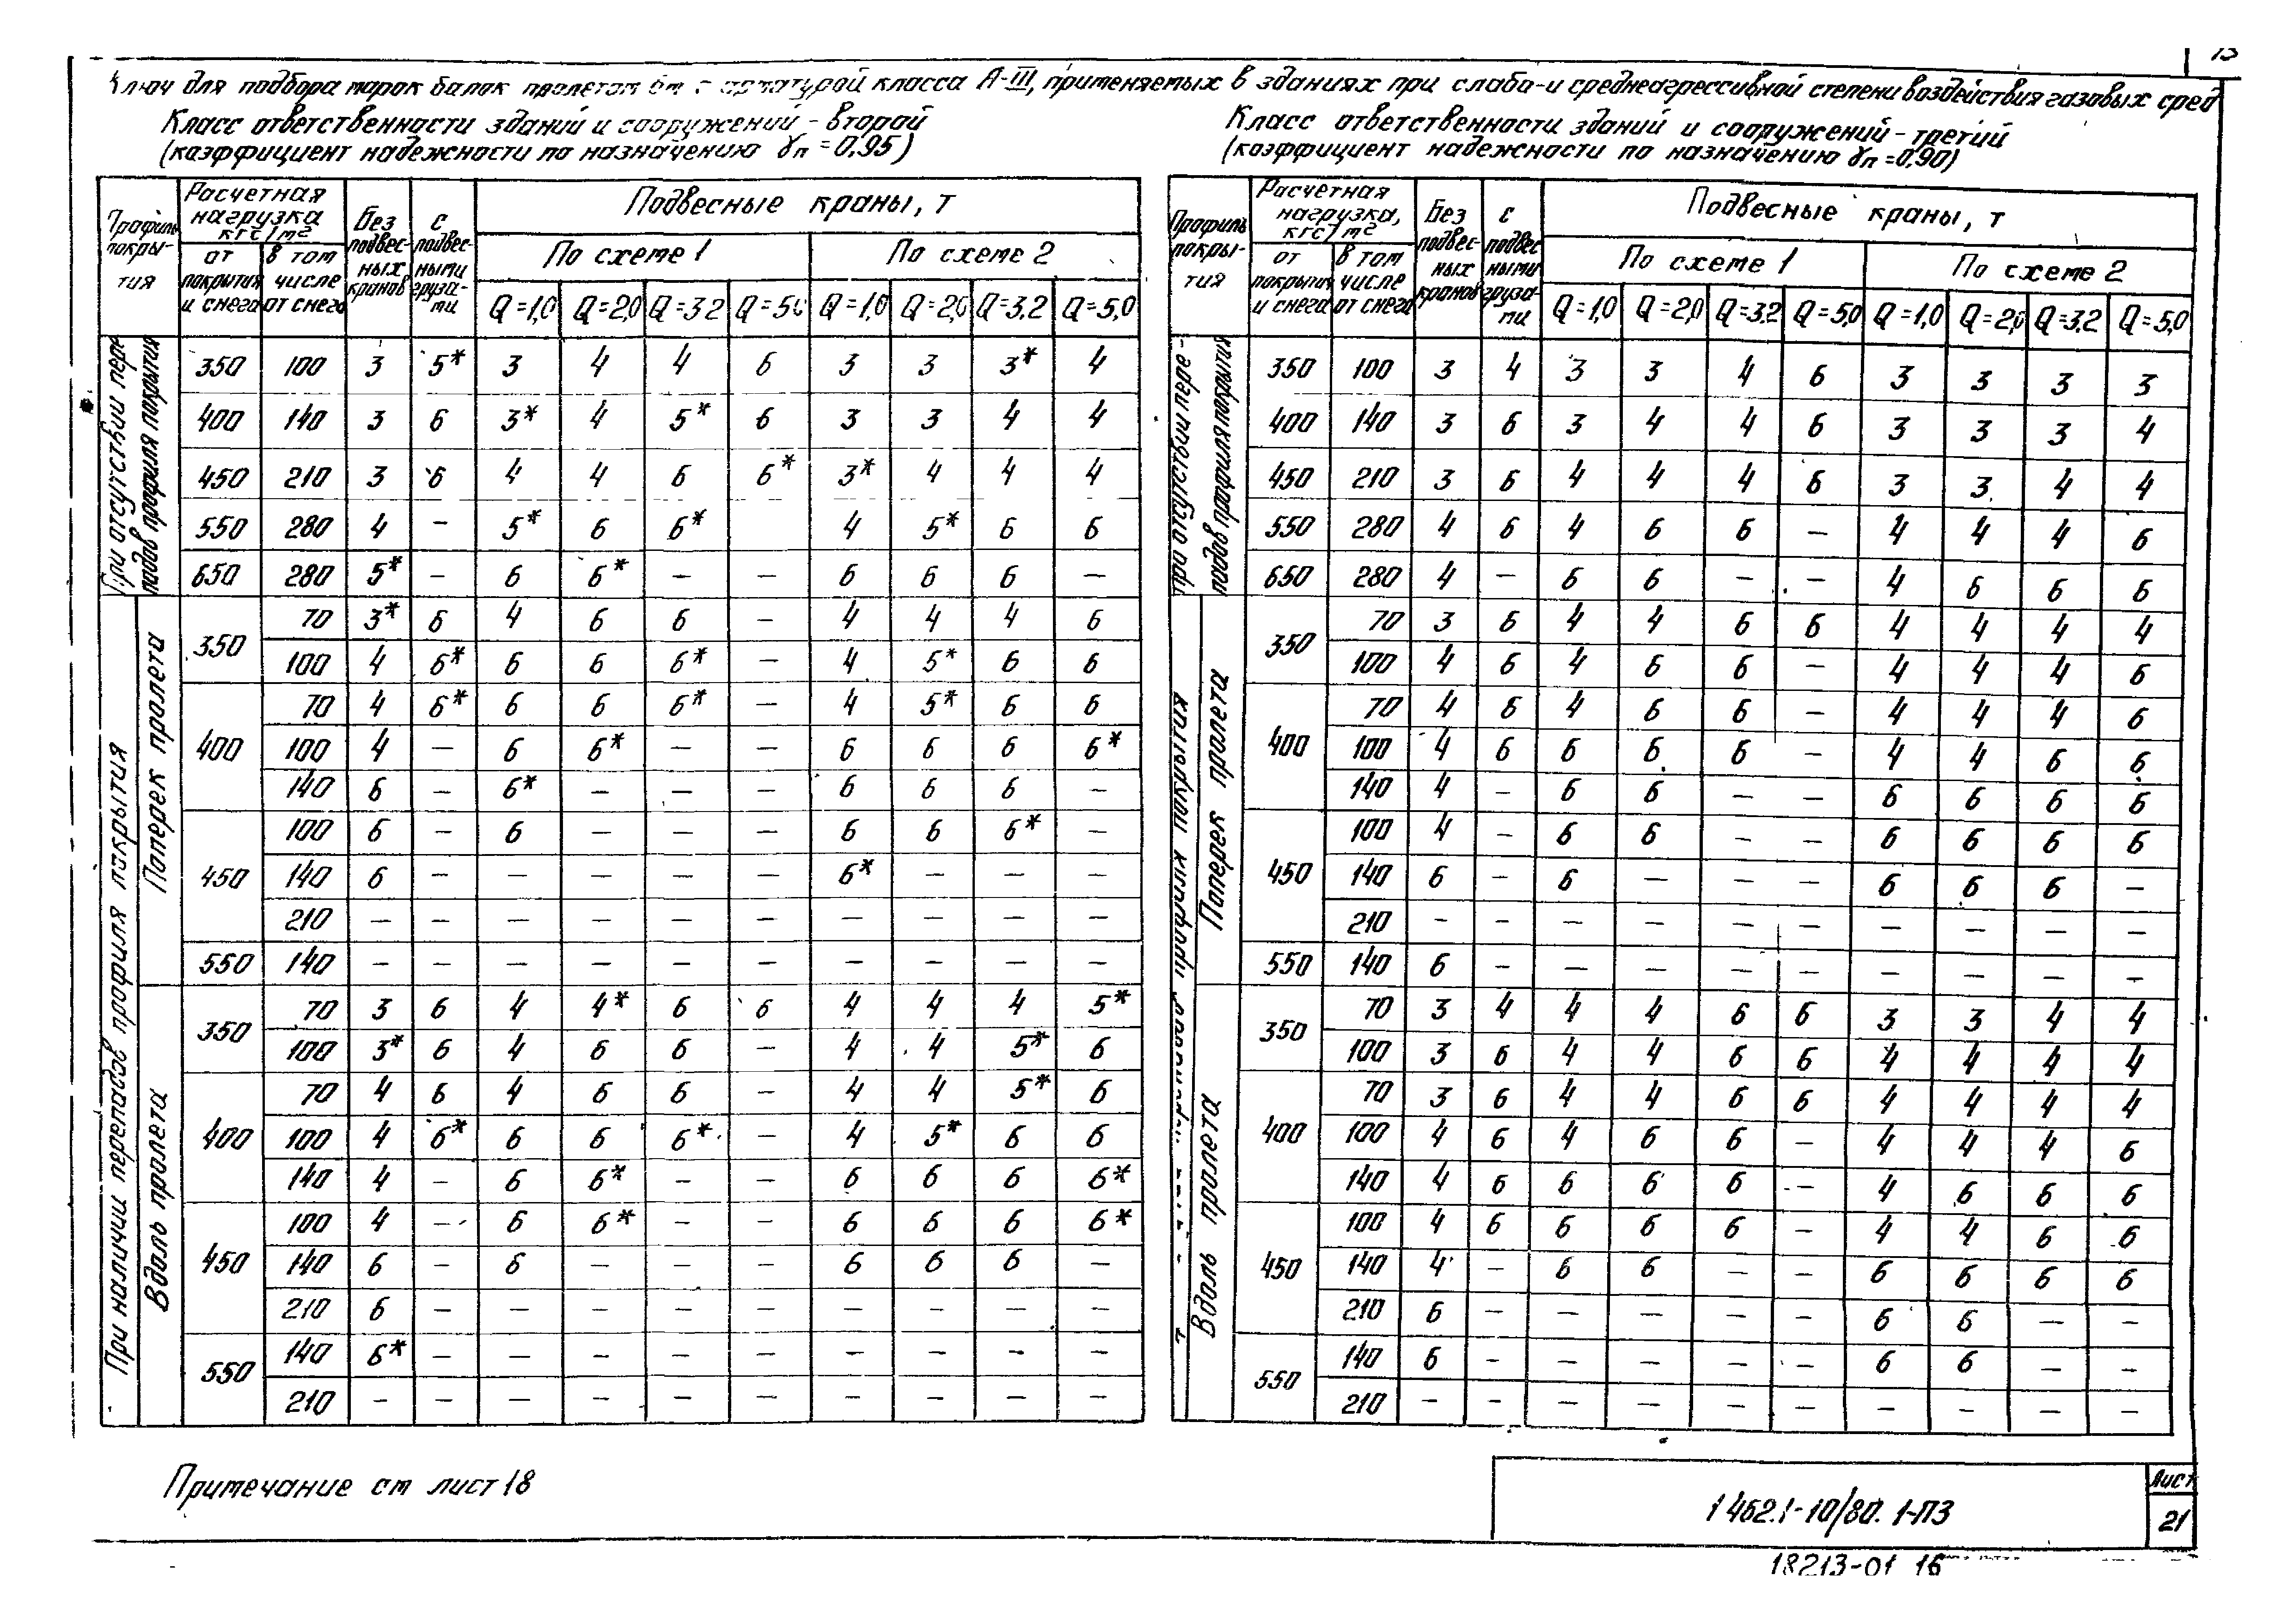 13
Ключ для подбора марок балок пролетом 6м с арматурой класса А-III, применяемых в зданиях при слабо- и среднеагрессивной степени воздействия газовых сред
Класс ответственности зданий и сооружений - второй
(коэффициент надежности по назначению γп = 0,95)
Профиль покрытия | Расчетная нагрузка кгс/м² | Без подвесных кранов | С подвесными грузами | Подвесные краны, т
от покрытия и снега | в том числе от снега | По схеме 1 | По схеме 2
Q=1,0 Q=2,0 Q=3,2 Q=5,0 Q=1,0 Q=2,0 Q=3,2 Q=5,0
При отсутствии перепадов профиля покрытия
350 100 3 5* 3 4 4 6 3 3 3* 4
400 140 3 6 3* 4 5* 6 3 3 4 4
450 210 3 6 4 4 6 6* 3* 4 4 4
550 280 4 – 5* 6 6* 4 5* 6 6
650 280 5* – 6 6* – – 6 6 6 –
При наличии перепадов профиля покрытия
Поперек пролета
350 70 3* 6 4 6 6 – 4 4 4 6
100 4 6* 6 6 6* – 4 5* 6 6
400 70 4 6* 6 6 6* – 4 5* 6 6
100 4 – 6 6* – – 6 6 6 6*
140 6 – 6* – – – 6 6 6 –
450 100 6 – 6 – – – 6 6 6* –
140 6 – – – – – 6* – – –
210 – – – – – – – – – –
550 140 – – – – – – – – – –
Вдоль пролета
350 70 3 6 4 4* 6 6 4 4 4 5*
100 3* 6 4 6 6 – 4 4 5* 6
400 70 4 6 4 6 6 – 4 4 5* 6
100 4 6* 6 6 6* – 4 5* 6 6
140 4 – 6 6* – – 6 6 6 6*
450 100 4 – 6 6* – – 6 6 6 6*
140 6 – 6 – – – 6 6 6 –
210 6 – – – – – – – – –
550 140 6* – – – – – – – – –
210 – – – – – – – – – –
Класс ответственности зданий и сооружений - третий
(коэффициент надежности по назначению γп = 0,90)
Профиль покрытия | Расчетная нагрузка, кгс/м² | Без подвесных кранов | С подвесными грузами | Подвесные краны, т
от покрытия и снега | в том числе от снега | По схеме 1 | По схеме 2
Q=1,0 Q=2,0 Q=3,2 Q=5,0 Q=1,0 Q=2,0 Q=3,2 Q=5,0
При отсутствии перепадов профиля покрытия
350 100 3 4 3 3 4 6 3 3 3 3
400 140 3 6 3 4 4 6 3 3 3 4
450 210 3 6 4 4 4 6 3 3 4 4
550 280 4 6 4 6 6 – 4 4 4 6
650 280 4 – 6 6 – – 4 6 6 6
профиля покрытия
Поперек пролета
350 70 3 6 4 4 6 6 4 4 4 4
100 4 6 4 6 6 – 4 4 4 6
400 70 4 6 4 6 6 – 4 4 4 6
100 4 6 6 6 6 – 4 4 6 6
140 4 – 6 6 – – 6 6 6 6
450 100 4 – 6 6 – – 6 6 6 6
140 6 – 6 – – – 6 6 6 –
210 – – – – – – – – – –
550 140 6 – – – – – – – – –
Вдоль пролета
350 70 3 4 4 4 6 6 3 3 4 4
100 3 6 4 4 6 6 4 4 4 4
400 70 3 6 4 4 6 6 4 4 4 4
100 4 6 4 6 6 – 4 4 4 6
140 4 6 6 6 6 – 4 6 6 6
450 100 4 6 6 6 6 – 4 4 6 6
140 4 – 6 6 – – 6 6 6 6
210 6 – – – – – 6 6 – –
550 140 6 – – – – – 6 6 – –
210 – – – – – – – – – –
Примечание см лист 18
1 462.1-10/80. 1-ПЗ
Лист
21
18213-01 16